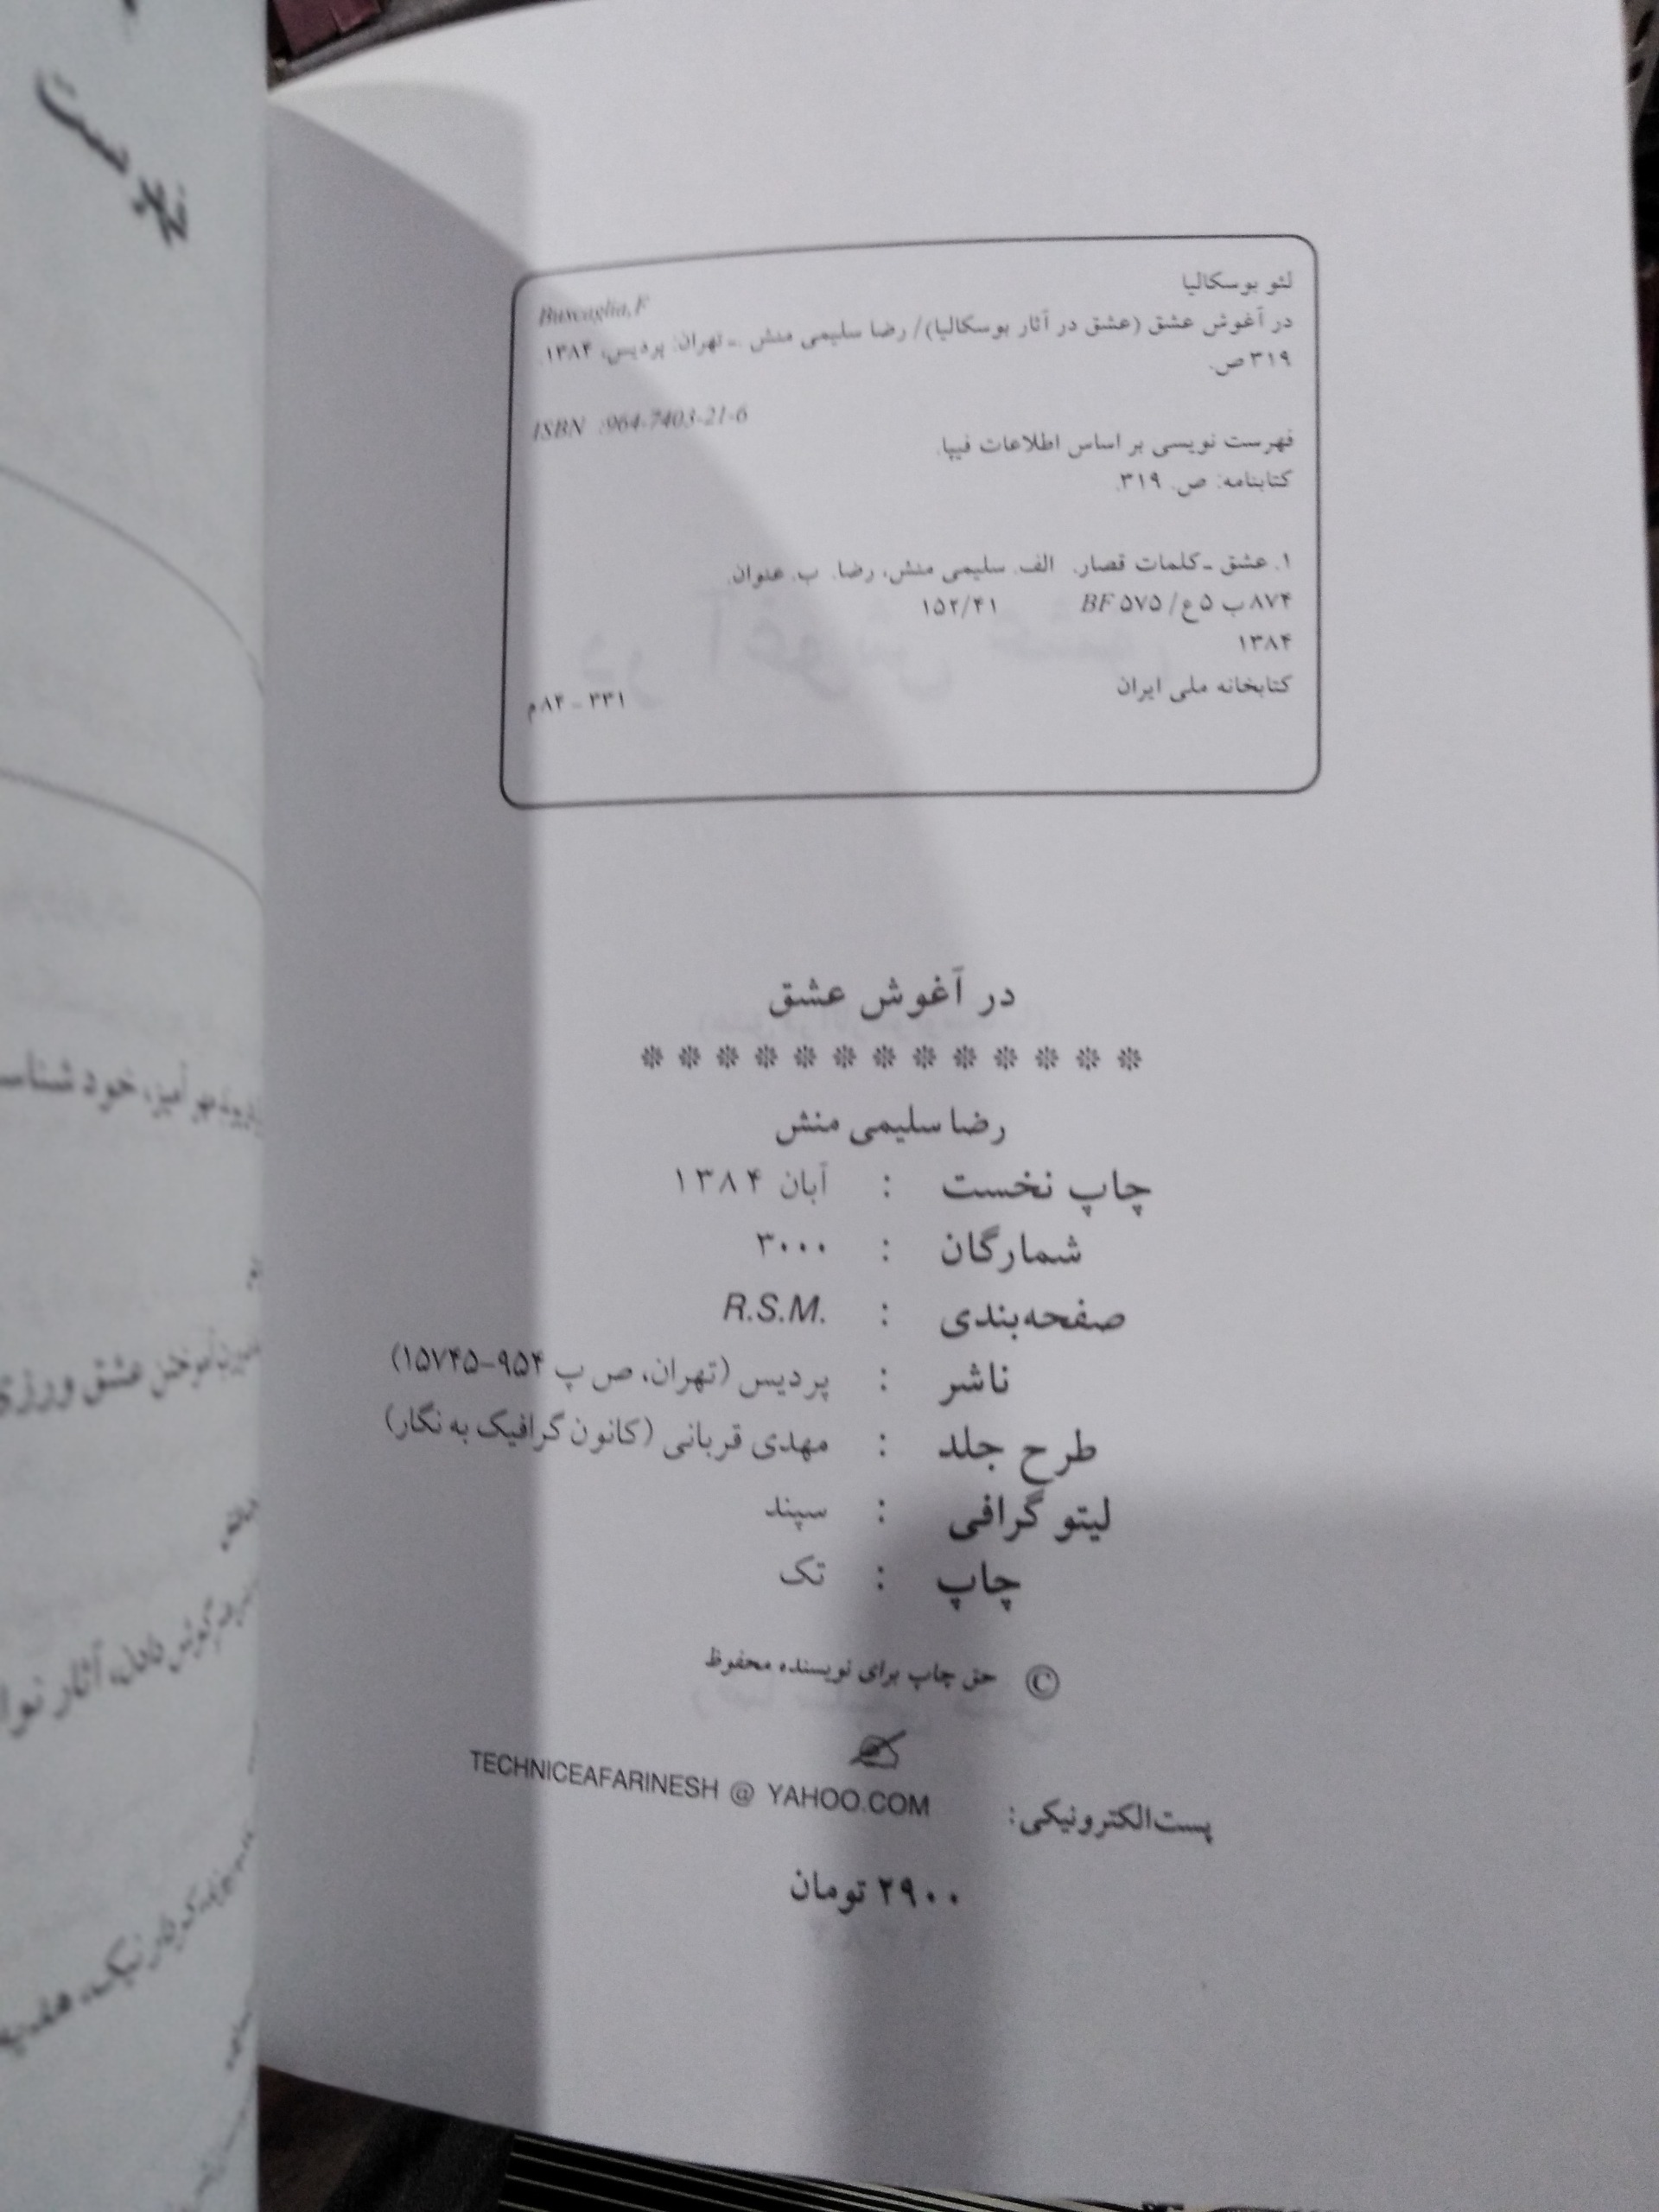 فهرست
لئو بوسکالیا
Buscaglia, F
در آغوش عشق (عشق در آثار بوسکالیا)/ رضا سلیمی منش ـ تهران: پردیس، ۱۳۸۴.
۳۱۹ ص.
ISBN :964-7403-21-6
فهرست نویسی بر اساس اطلاعات فیپا.
کتابنامه: ص. ۳۱۹.
۱. عشق ـ کلمات قصار. الف. سلیمی منش، رضا. ب. عنوان.
۸۷۴ ب ۵ ع/ BF ۵۷۵ ۱۵۲/۴۱
۱۳۸۴
کتابخانه ملی ایران ۳۳۱ - ۸۴ م
در آغوش عشق
❊ ❊ ❊ ❊ ❊ ❊ ❊ ❊ ❊ ❊ ❊ ❊ ❊
رضا سلیمی منش
چاپ نخست : آبان ۱۳۸۴
شمارگان : ۳۰۰۰
صفحه‌بندی : R.S.M.
ناشر : پردیس (تهران، ص پ ۹۵۴-۱۵۷۴۵)
طرح جلد : مهدی قربانی (کانون گرافیک به نگار)
لیتو گرافی : سپند
چاپ : تک
© حق چاپ برای نویسنده محفوظ
پست‌الکترونیکی: TECHNICEAFARINESH @ YAHOO.COM
۲۹۰۰ تومان
مهر آمیز، خود شناس
آموختن عشق ورزی
دادن، آثار نوا
نیک، هف